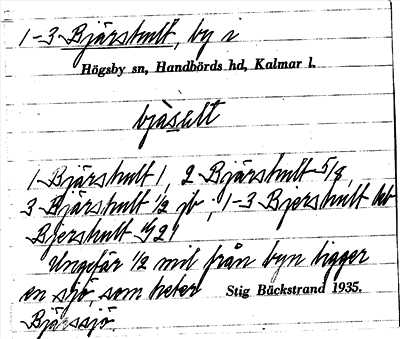 1-3 Bjärshult, by i
Högsby sn, Handbörds hd, Kalmar l.
bjäsult
1 Bjärshult 1, 2 Bjärshult 5/8,
3 Bjärshult 1/2 jb, 1-3 Bjershult
Bjershult 1921
Ungefär 1/2 mil från byn ligger
en sjö, som heter Stig Bäckstrand 1935.
Bjärssjö.